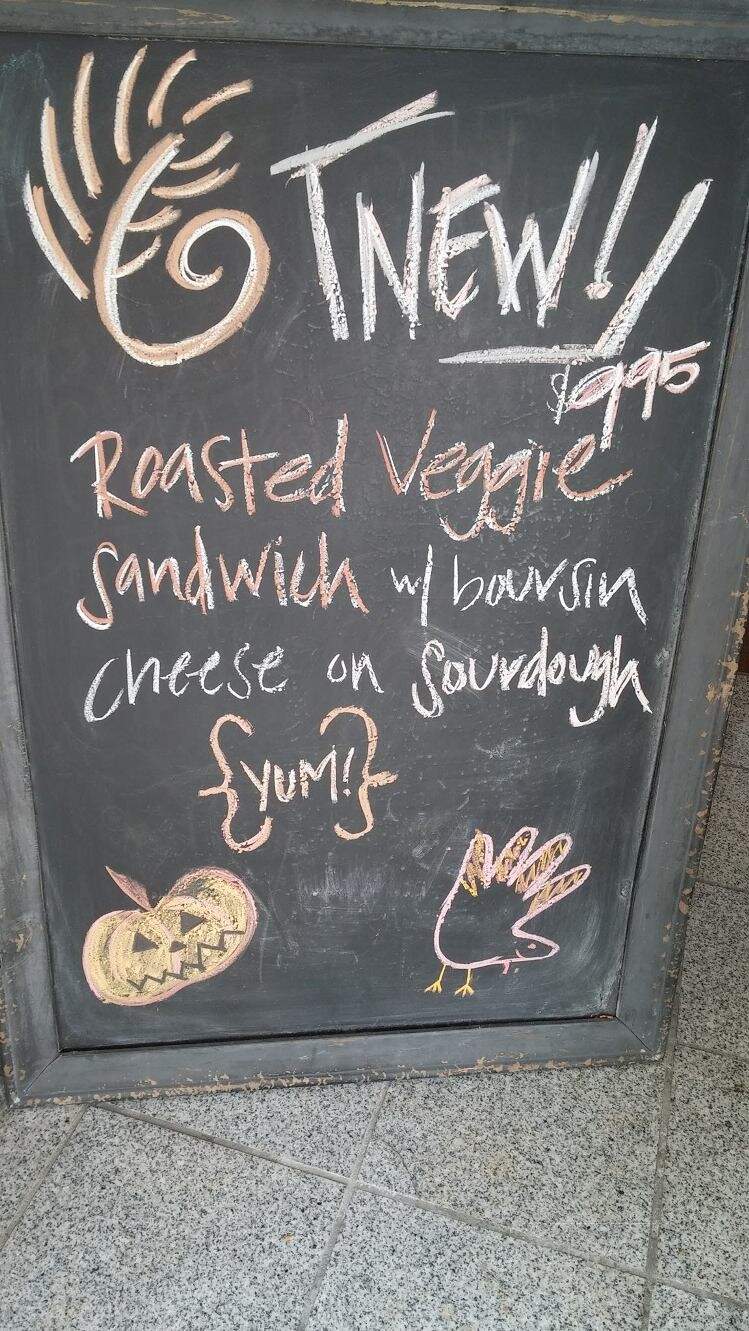 TNEW!
$995
Roasted Veggie
Sandwich w/ boursin
cheese on Sourdough
{YUM!}